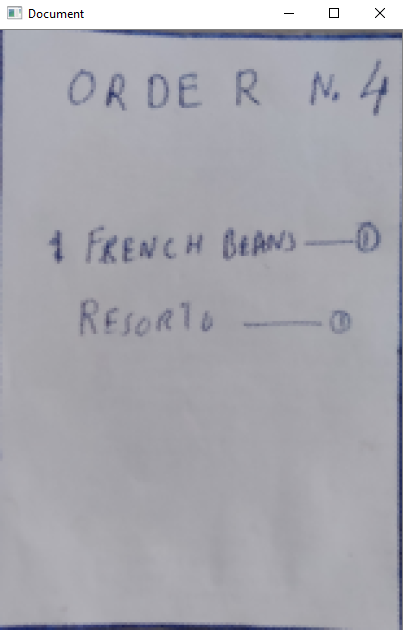 Document
ORDER N. 4
1 FRENCH BEANS — ①
RESORTO —